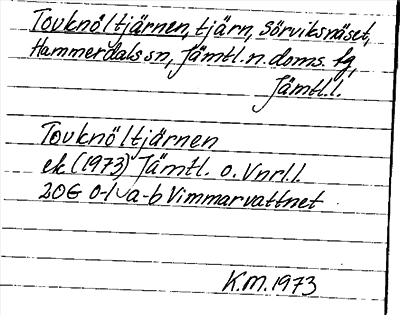 Tovknöltjärnen, tjärn, Sörviksnäset,
Hammerdals sn, Jämtl. n. doms. fg,
Jämtl. l.
Tovknöltjärnen
ek (1973) Jämtl. o. Vnrl. l.
20G 0-1 a-b Vimmarvattnet
K.M. 1973